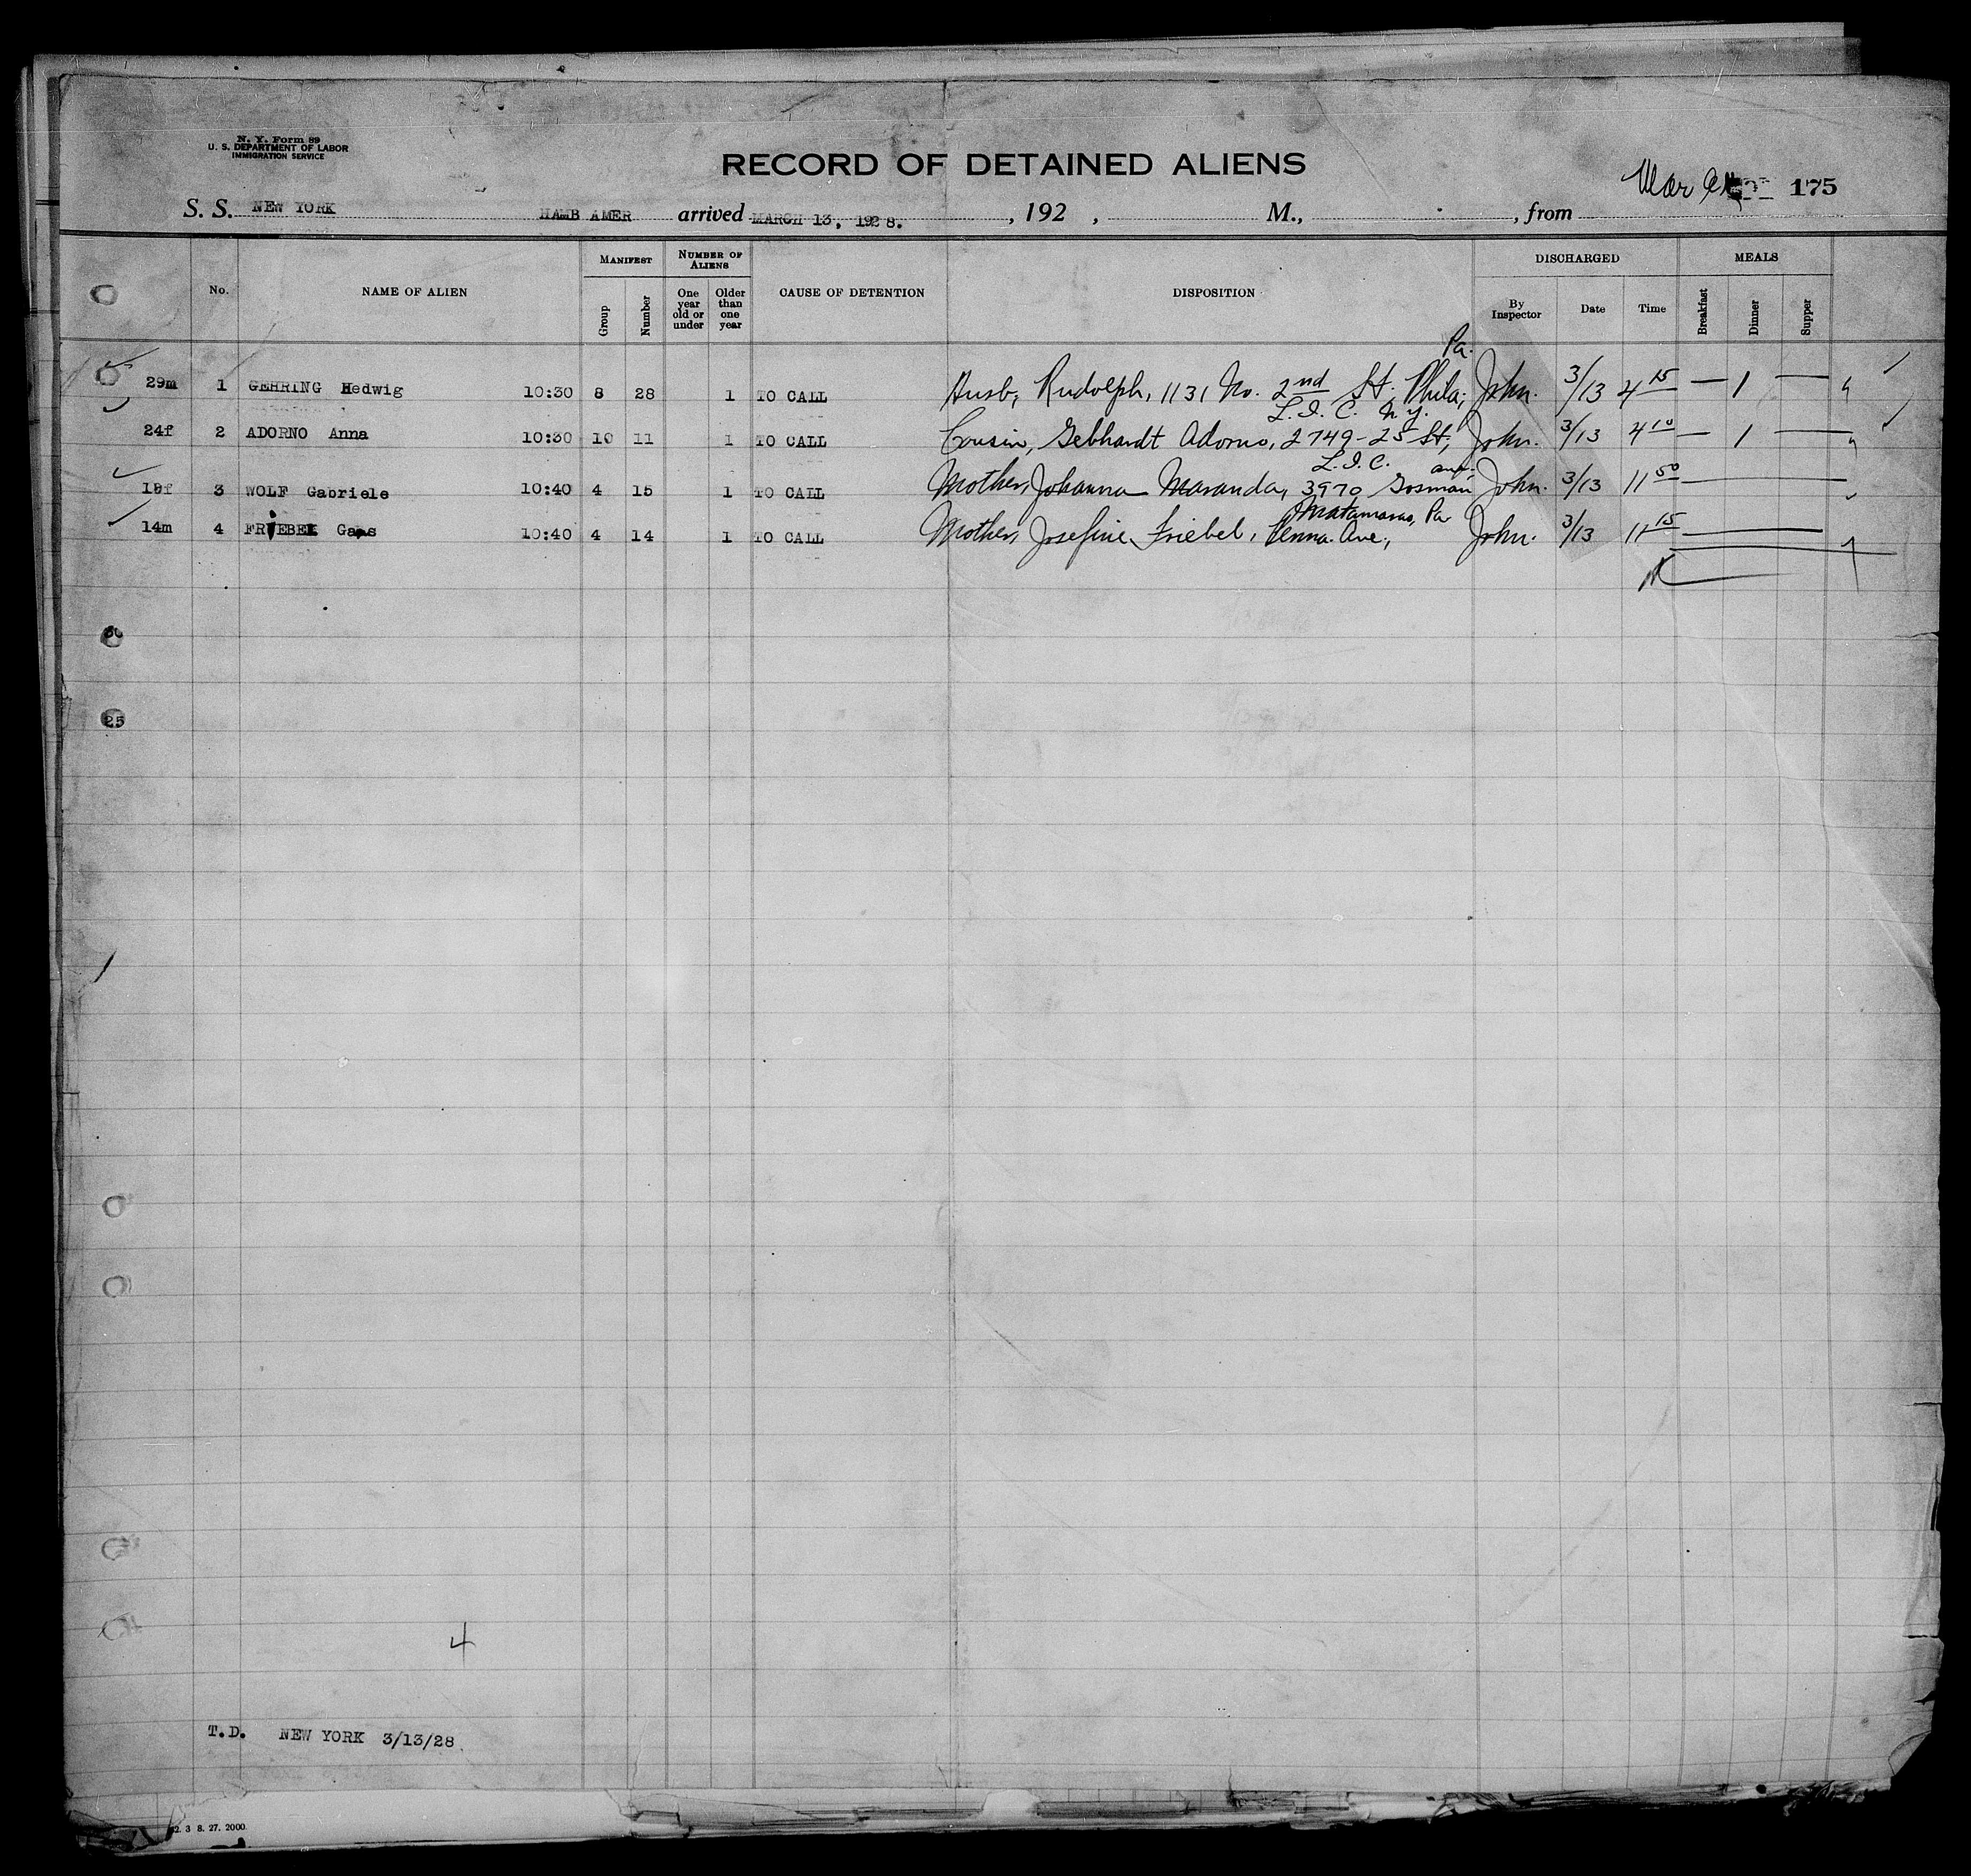 N. Y. Form 89
U. S. DEPARTMENT OF LABOR
IMMIGRATION SERVICE
RECORD OF DETAINED ALIENS
175
S. S. NEW YORK HAMB AMER arrived MARCH 13, 1928. , 192 , M., , from
No. NAME OF ALIEN MANIFEST Group Number NUMBER OF ALIENS One year old or under Older than one year CAUSE OF DETENTION DISPOSITION DISCHARGED By Inspector Date Time MEALS Breakfast Dinner Supper
Pa.
29m 1 GEHRING Hedwig 10:30 8 28 1 TO CALL Husb, Rudolph, 1131 No. 2nd St. Phila; John. 3/13 4 15 — 1 —
L.I.C. N.Y.
24f 2 ADORNO Anna 10:30 10 11 1 TO CALL Cousin, Gebhardt Adorno, 2749-25 St, John. 3/13 4 10 — 1 —
L.I.C.
3 WOLF Gabriele 10:40 4 15 1 TO CALL Mother, Johanna Maranda, 3970 Gosman John. 3/13 11 50
Matamoras, Pa
14m 4 FRIEBEL 10:40 4 14 1 TO CALL Mother, Josefine Friebel, Penna. Ave., John. 3/13 11 15
30
25
4
T.D. NEW YORK 3/13/28
3 8. 27. 2000